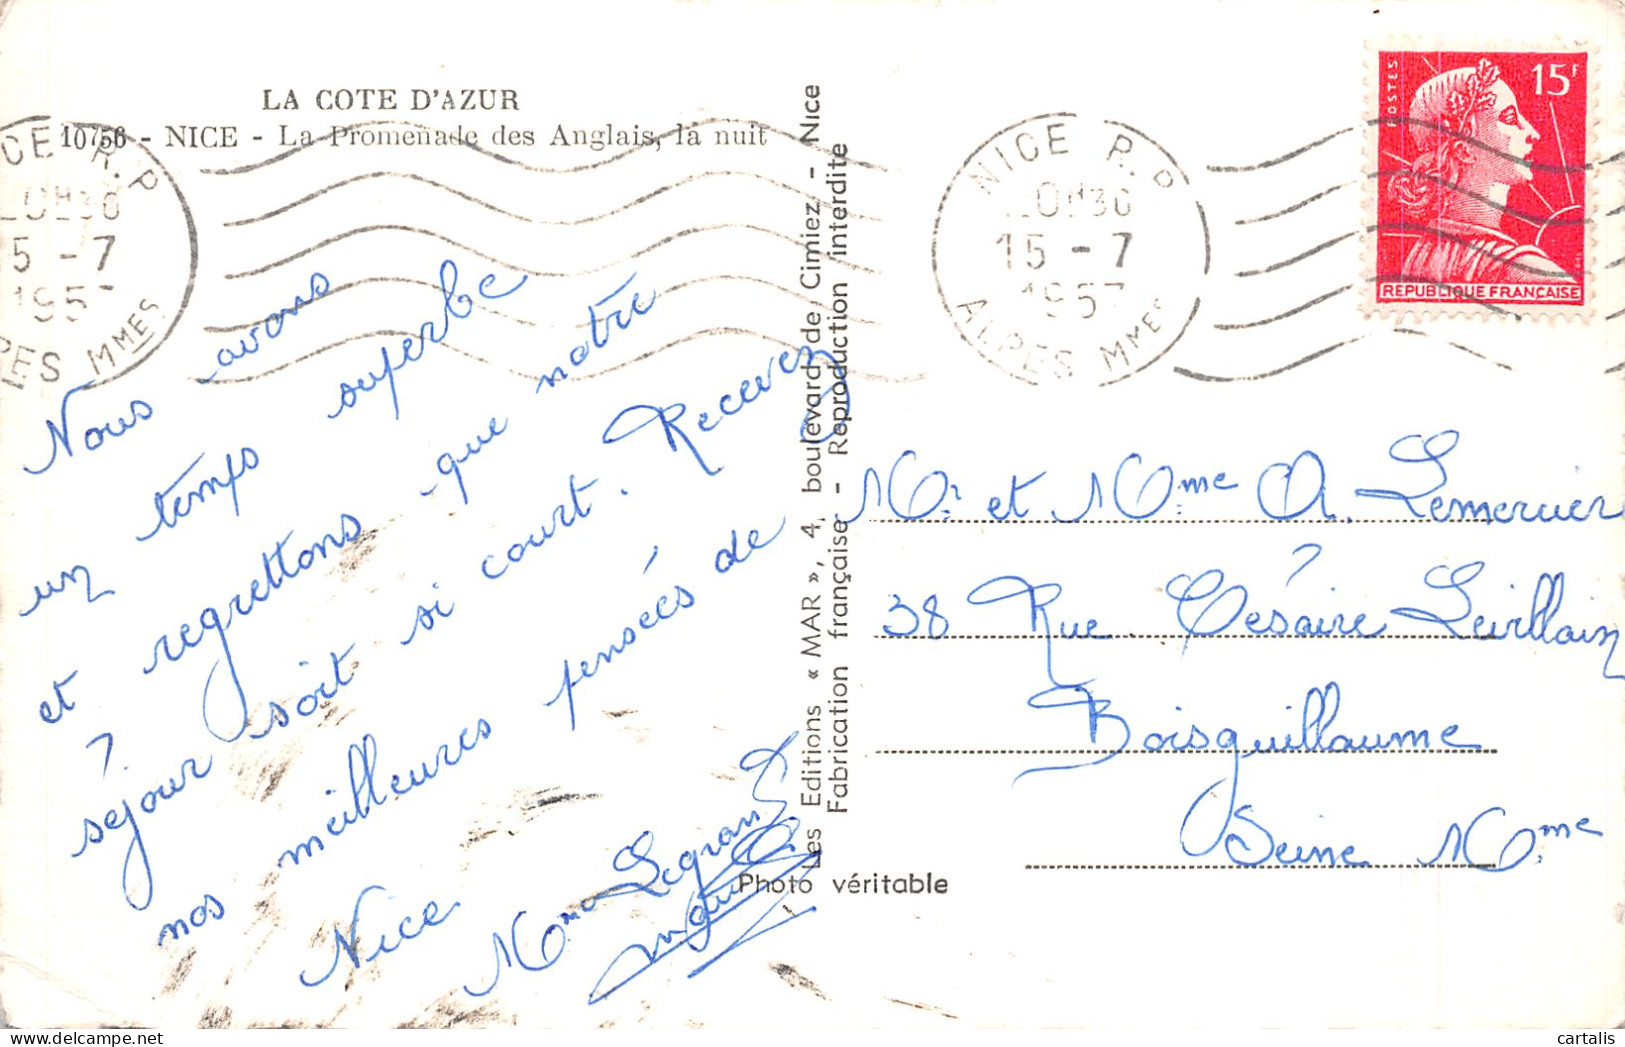 LA COTE D'AZUR
10756 - NICE - La Promenade des Anglais, la nuit
Nous avons
un temps superbe
et regrettons que notre
séjour soit si court. Recevez
nos meilleures pensées de
Nice
Mme Legrand
Les Editions « MAR », 4, boulevard de Cimiez - Nice
Fabrication française - Reproduction interdite
Photo véritable
NICE R.P
15 -7
1957
ALPES MMES
NICE R.P
20H30
15 -7
1957
ALPES MMES
POSTES
15F
REPUBLIQUE FRANÇAISE
Mr et Mme A. Lemercier
38 Rue Césaire Levillain
Boisguillaume
Seine Mme
cartalis